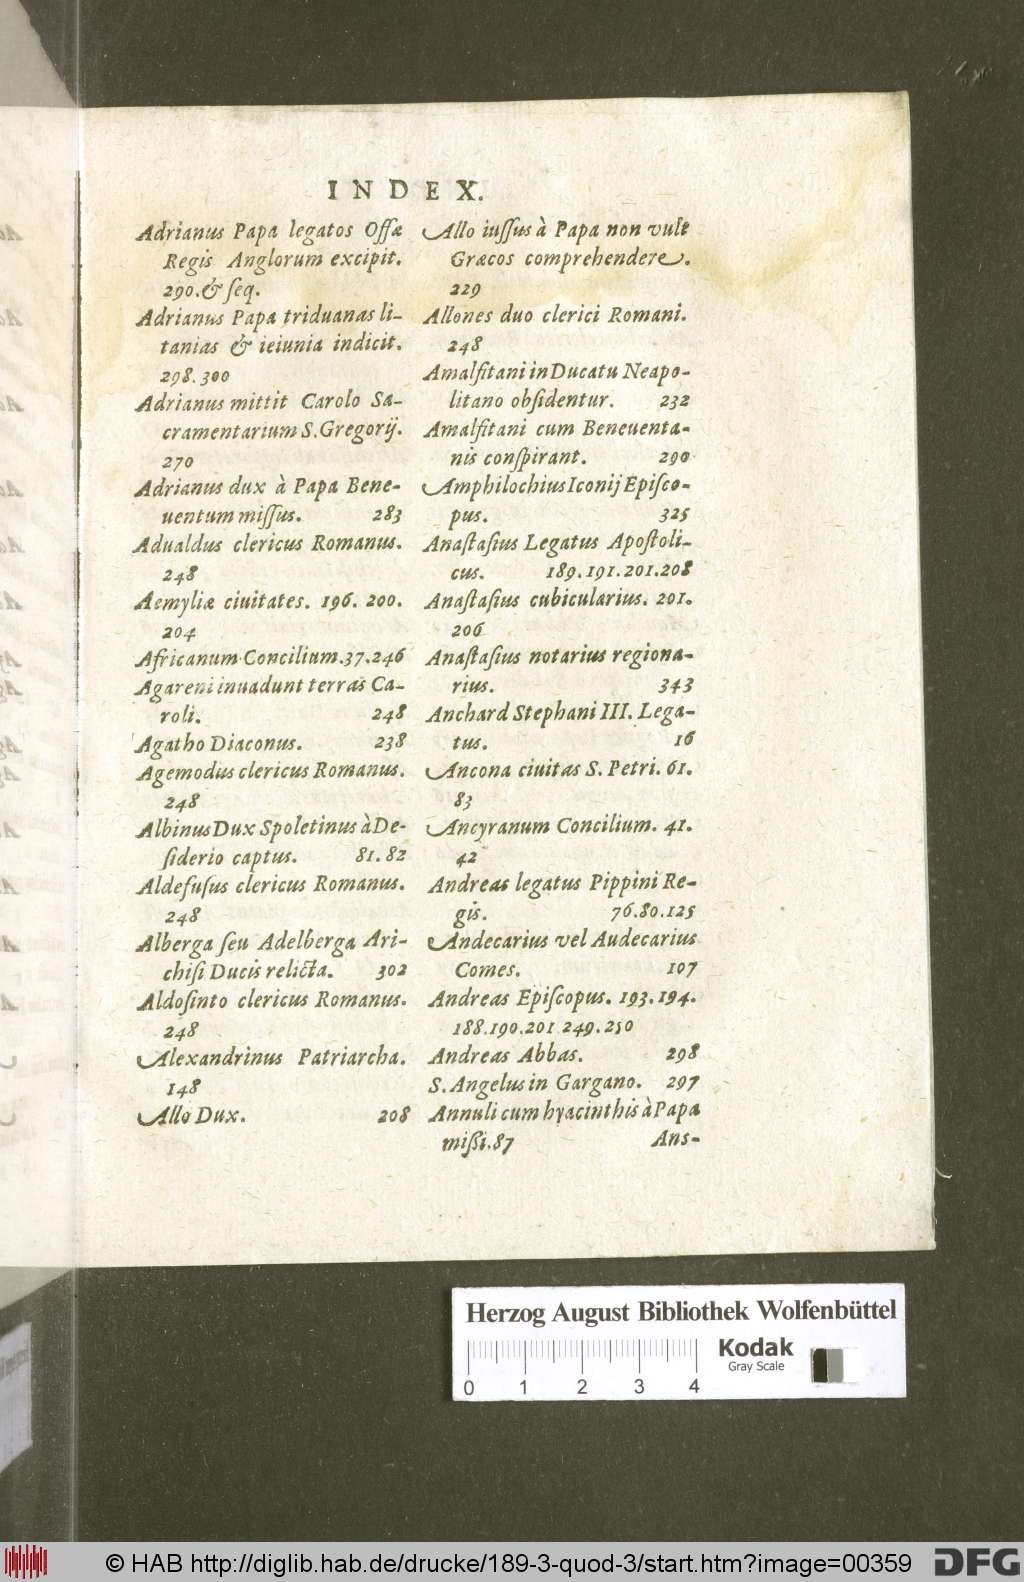 INDEX.
Adrianus Papa legatos Offæ
Regis Anglorum excipit.
290. & ſeq.
Adrianus Papa triduanas li-
tanias & ieiunia indicit.
298. 300
Adrianus mittit Carolo Sa-
cramentarium S. Gregorij.
270
Adrianus dux à Papa Bene-
uentum miſſus. 283
Adualdus clericus Romanus.
248
Aemyliæ ciuitates. 196. 200.
204
Africanum Concilium. 37. 246
Agareni inuadunt terras Ca-
roli. 248
Agatho Diaconus. 238
Agemodus clericus Romanus.
248
Albinus Dux Spoletinus à De-
ſiderio captus. 81. 82
Aldefuſus clericus Romanus.
248
Alberga ſeu Adelberga Ari-
chiſi Ducis relicta. 302
Aldoſinto clericus Romanus.
248
Alexandrinus Patriarcha.
148
Allo Dux. 208
Allo iuſſus à Papa non vult
Græcos comprehendere.
229
Allones duo clerici Romani.
248
Amalfitani in Ducatu Neapo-
litano obſidentur. 232
Amalfitani cum Beneuenta-
nis conſpirant. 290
Amphilochius Iconij Epiſco-
pus. 325
Anaſtaſius Legatus Apoſtoli-
cus. 189. 191. 201. 208
Anaſtaſius cubicularius. 201.
206
Anaſtaſius notarius regiona-
rius. 343
Anchard Stephani III. Lega-
tus. 16
Ancona ciuitas S. Petri. 61.
83
Ancyranum Concilium. 41.
42
Andreas legatus Pippini Re-
gis. 76. 80. 125
Andecarius vel Audecarius
Comes. 107
Andreas Epiſcopus. 193. 194.
188. 190. 201 249. 250
Andreas Abbas. 298
S. Angelus in Gargano. 297
Annuli cum hyacinthis à Papa
mißi. 87 Ans-
Herzog August Bibliothek Wolfenbüttel
Kodak
Gray Scale
0 1 2 3 4
© HAB http://diglib.hab.de/drucke/189-3-quod-3/start.htm?image=00359
DFG